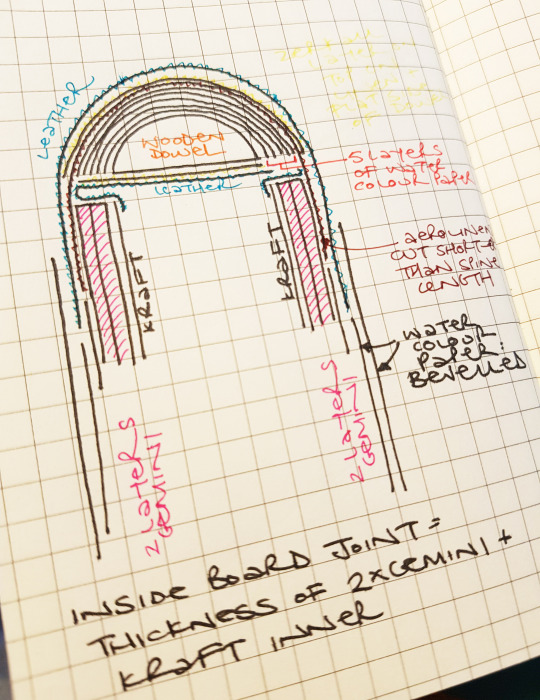 LEATHER
WOODEN
DOWEL
LEATHER
5 LAYERS
OF WATER
COLOUR PAPER
AEROLINEN
CUT SHORTER
THAN SPINE
LENGTH
KRAFT
KRAFT
WATER
COLOUR
PAPER:
BEVELLED
2 LAYERS
GEMINI
2 LAYERS
GEMINI
INSIDE BOARD JOINT =
THICKNESS OF 2XGEMINI +
KRAFT INNER